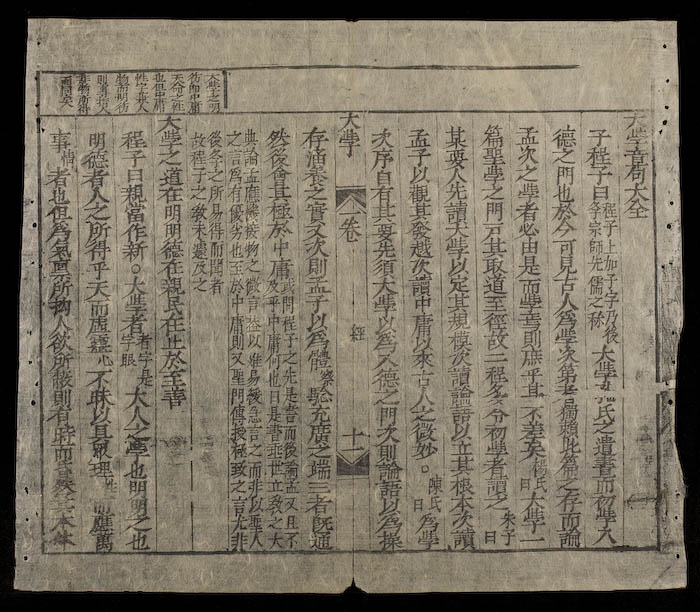 大學章句大全
子程子曰程子上加子字乃後學宗師先儒之稱大學孔氏之遺書而初學入
德之門也於今可見古人爲學次第者獨賴此篇之存而論
孟次之學者必由是而學焉則庶乎其不差矣楊氏曰大學一
篇聖學之門戶其取道至徑故二程多令初學者讀之朱子曰
某要人先讀大學以定其規模次讀論語以立其根本次讀
孟子以觀其發越次讀中庸以求古人之微妙。陳氏曰爲學
次序自有其要先須大學以爲入德之門次則論語以爲操
大學 一卷 經 十一
存涵養之實又次則孟子以爲體驗充廣之端三者旣通
然後會其極於中庸或問程子之先是書而後論孟又且不及乎中庸何也曰是書垂世立敎之大
典論孟應機接物之微言益以難易緩急言之而非以聖人
之言爲有優劣也至於中庸則又聖門傳授極致之言尤非
後學之所易得而聞者
故程子之敎未遽及之
大學之道在明明德在親民在止於至善
程子曰親當作新。大學者者字是字眼大人之學也明明之也
明德者人之所得乎天而虛靈心不昧以具衆理性而應萬
事情者也但爲氣禀所拘人欲所蔽則有時而昏然其本体
大學之明
德卽中庸
天命之性
也但中庸
性字兼人
物而明德
則專指人